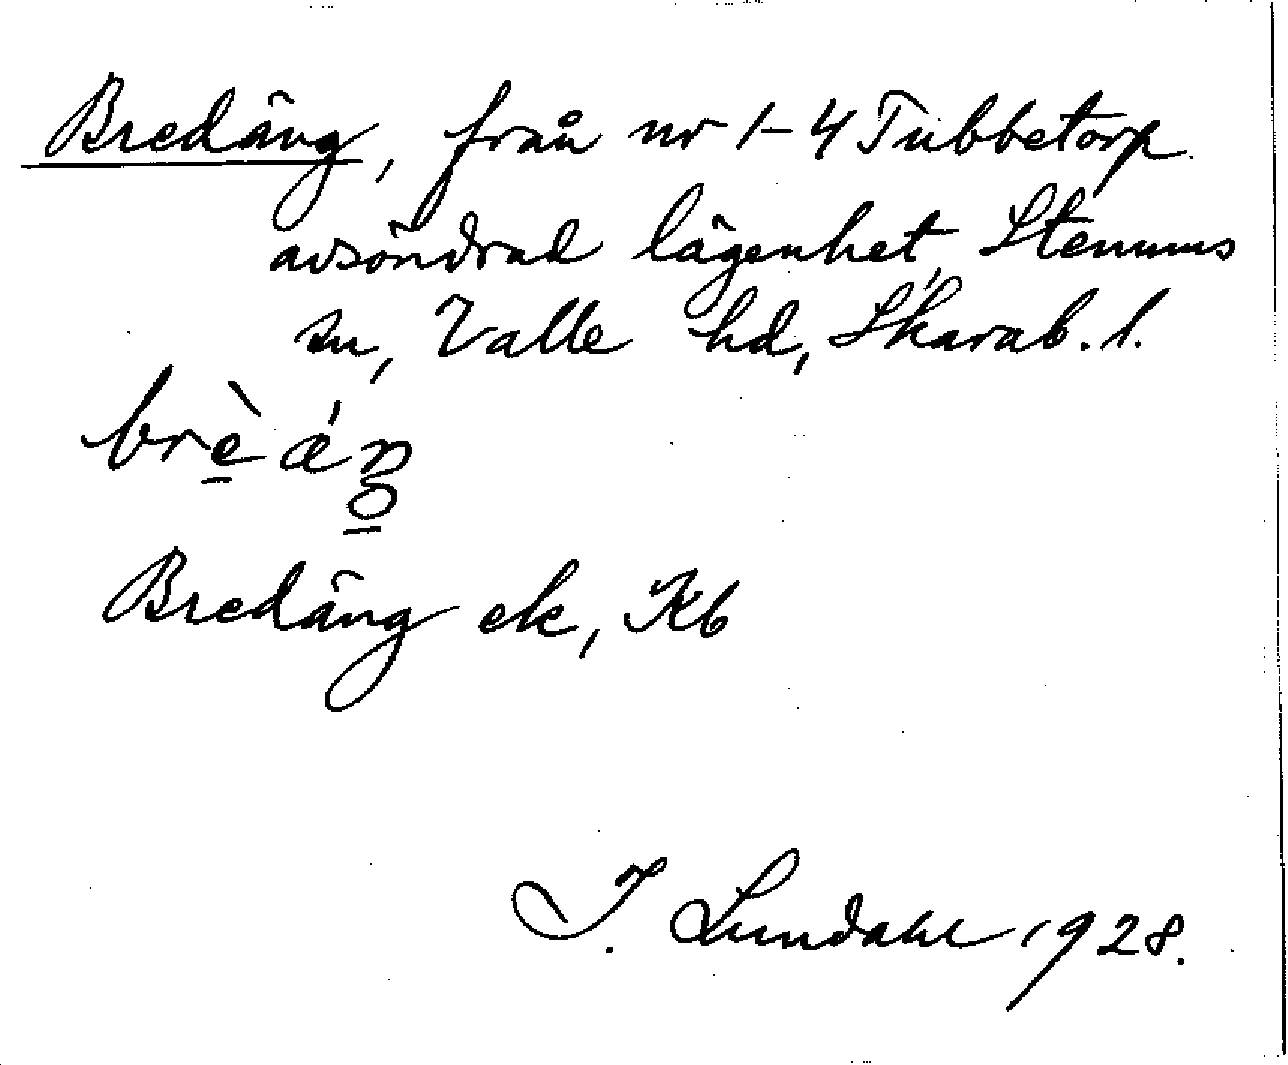 Bredäng, från nr 1-4 Tubbetorp
avsöndrad lägenhet, Stenums
sn, Valle hd, Skarab. l.
brè̱ áŋ
Bredäng ek, Kb
I. Lundahl 1928.